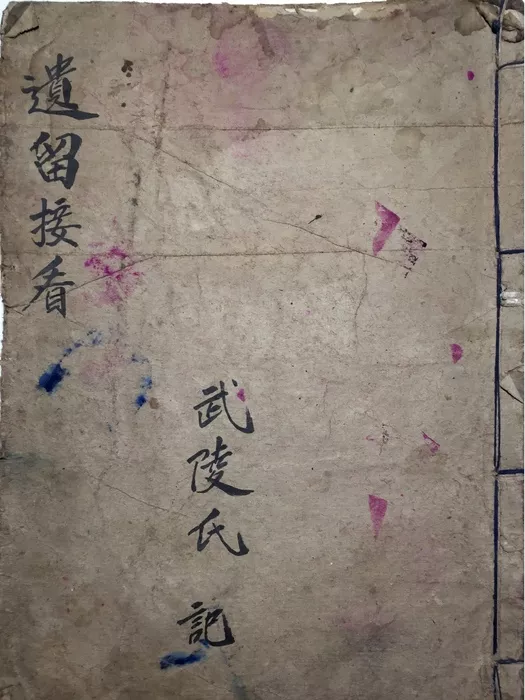 遺留接看
武陵氏 記